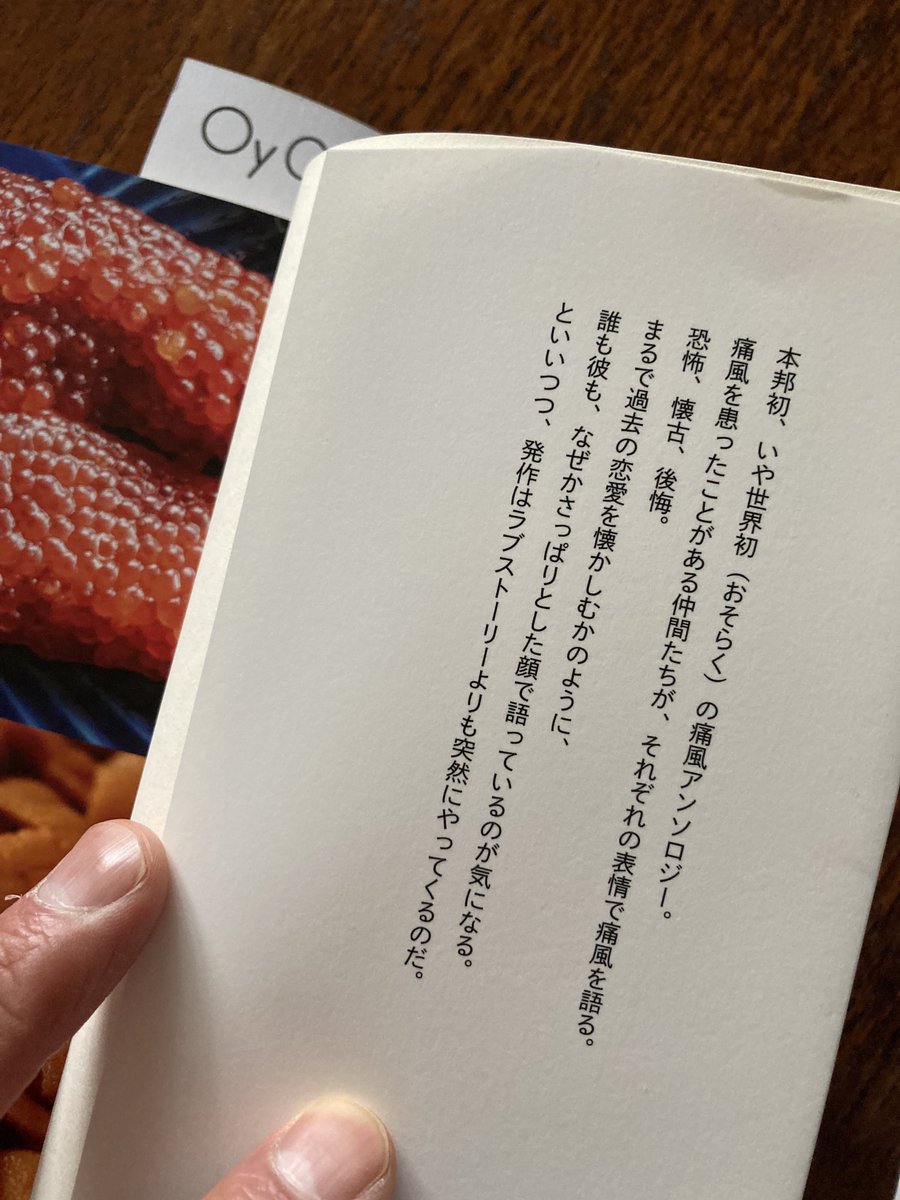 Oy
本邦初、いや世界初（おそらく）の痛風アンソロジー。
痛風を患ったことがある仲間たちが、それぞれの表情で痛風を語る。
恐怖、懐古、後悔。
まるで過去の恋愛を懐かしむかのように、
誰も彼も、なぜかさっぱりとした顔で語っているのが気になる。
といいつつ、発作はラブストーリーよりも突然にやってくるのだ。